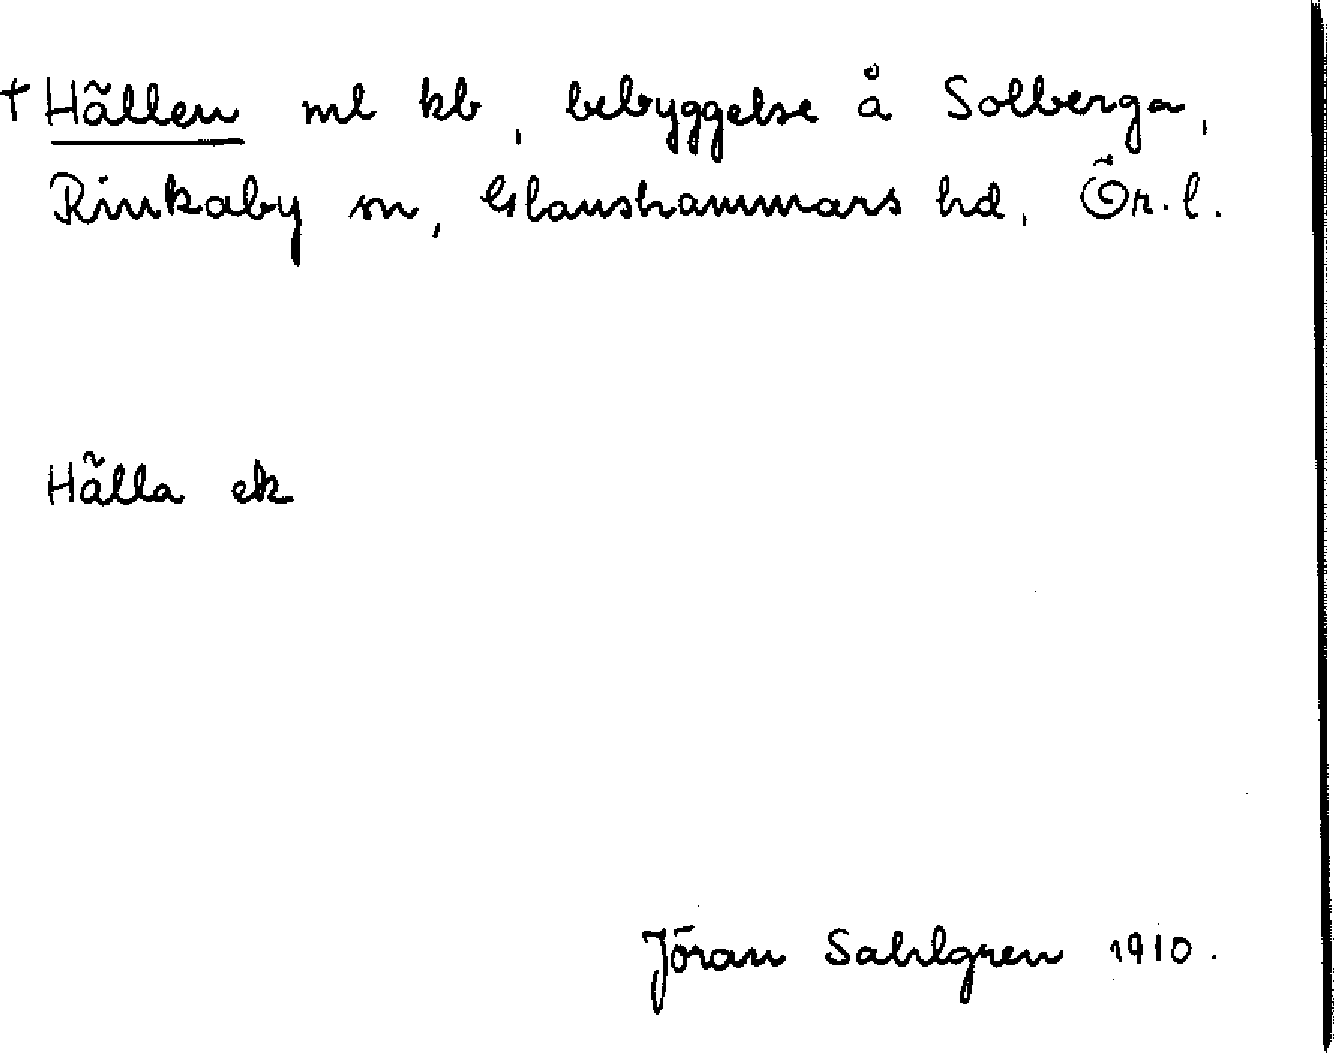 † Hällen ml kb, bebyggelse å Solberga,
Rinkaby sn, Glanshammars hd, Ör. l.
Hälla ek
Jöran Sahlgren 1910.